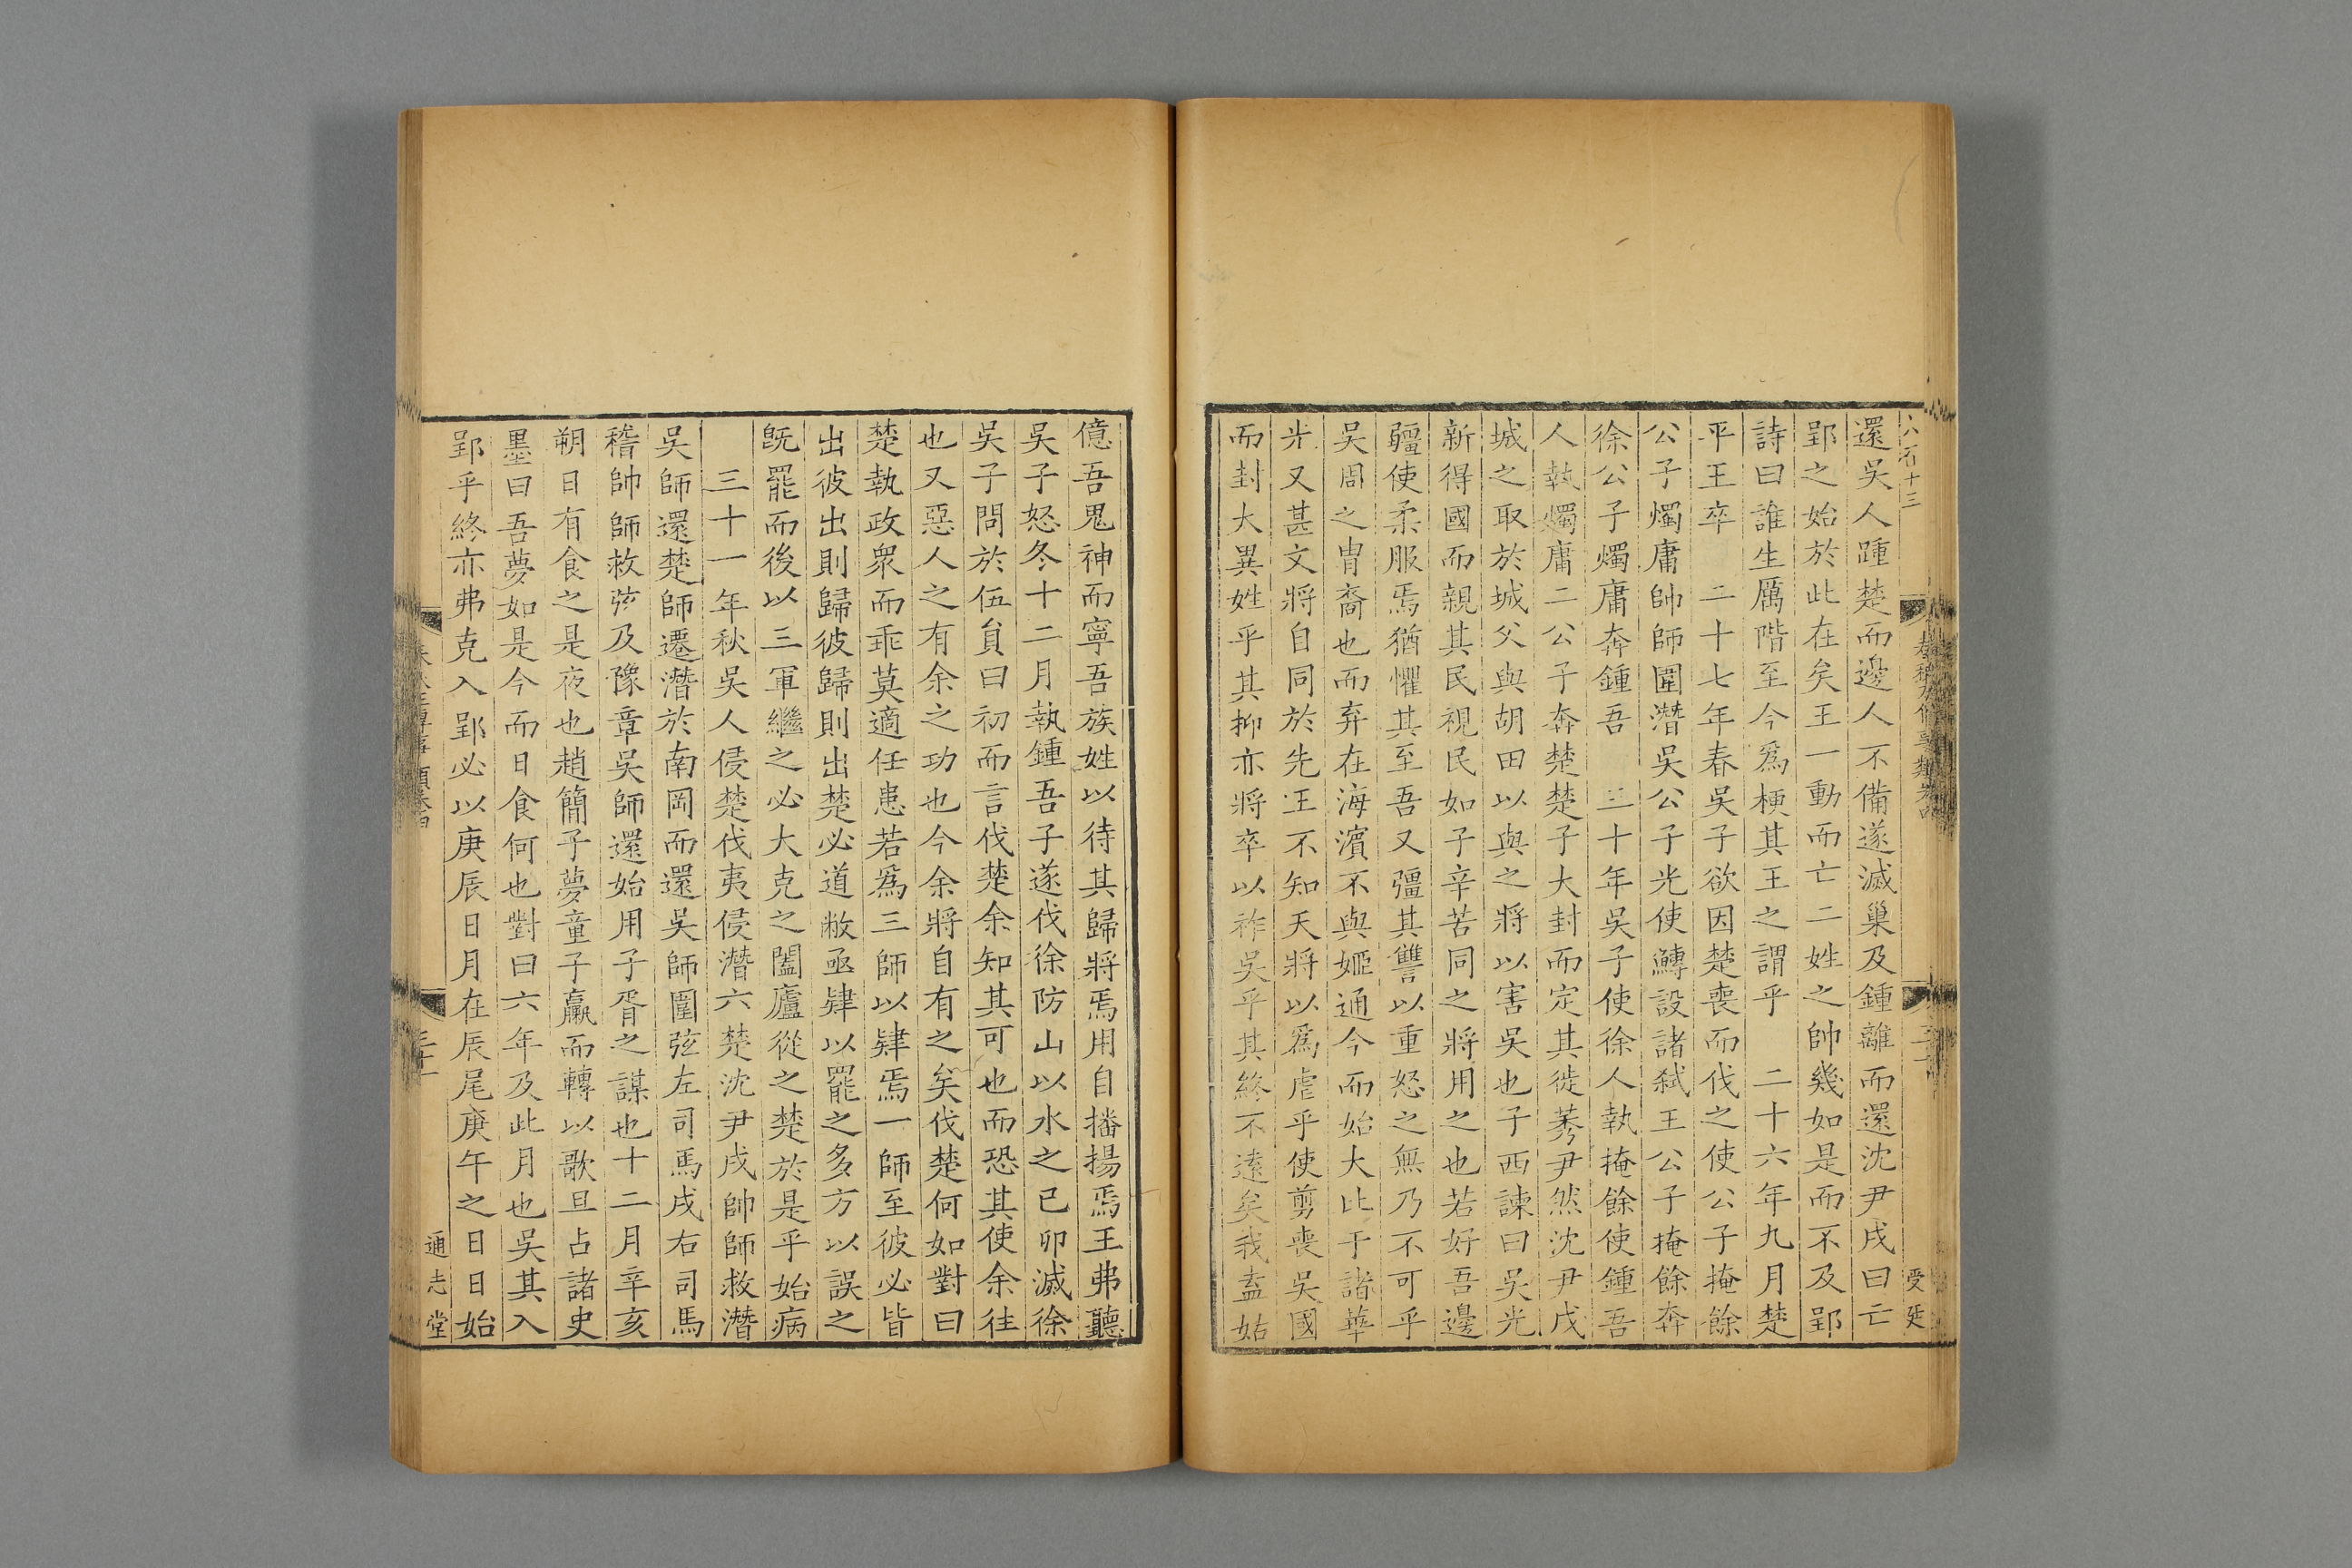 還吳人踵楚而邊人不備遂滅巢及鍾離而還沈尹戌曰亡
郢之始於此在矣王一動而亡二姓之帥幾如是而不及郢
詩曰誰生厲階至今爲梗其王之謂乎 二十六年九月楚
平王卒 二十七年春吳子欲因楚喪而伐之使公子掩餘
公子燭庸帥師圍潛吳公子光使鱄設諸弑王公子掩餘奔
徐公子燭庸奔鍾吾 三十年吳子使徐人執掩餘使鍾吾
人執燭庸二公子奔楚楚子大封而定其徙莠尹然沈尹戌
城之取於城父與胡田以與之將以害吳也子西諫曰吳光
新得國而親其民視民如子辛苦同之將用之也若好吾邊
疆使柔服焉猶懼其至吾又彊其讐以重怒之無乃不可乎
吳周之冑裔也而弃在海濱不與姬通今而始大比于諸華
光又甚文將自同於先王不知天將以爲虐乎使剪喪吳國
而封大異姓乎其抑亦將卒以祚吳乎其終不遠矣我盍姑
億吾鬼神而寧吾族姓以待其歸將焉用自播揚焉王弗聽
吳子怒冬十二月執鍾吾子遂伐徐防山以水之己卯滅徐
吳子問於伍員曰初而言伐楚余知其可也而恐其使余往
也又惡人之有余之功也今余將自有之矣伐楚何如對曰
楚執政衆而乖莫適任患若爲三師以肄焉一師至彼必皆
出彼出則歸彼歸則出楚必道敝亟肄以罷之多方以誤之
旣罷而後以三軍繼之必大克之闔廬從之楚於是乎始病
三十一年秋吳人侵楚伐夷侵潛六楚沈尹戌帥師救潛
吳師還楚師遷潛於南岡而還吳師圍弦左司馬戌右司馬
稽帥師救弦及豫章吳師還始用子胥之謀也十二月辛亥
朔日有食之是夜也趙簡子夢童子羸而轉以歌旦占諸史
墨曰吾夢如是今而日食何也對曰六年及此月也吳其入
郢乎終亦弗克入郢必以庚辰日月在辰尾庚午之日日始
通志堂